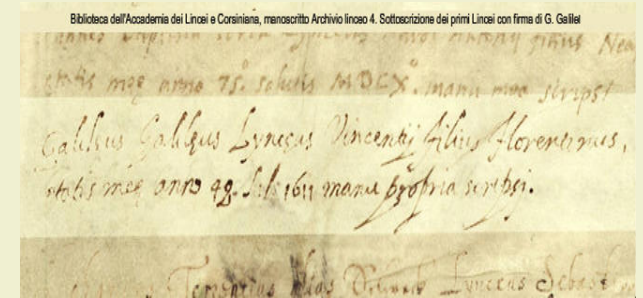 Biblioteca dell'Accademia dei Lincei e Corsiniana, manoscritto Archivio linceo 4. Sottoscrizione dei primi Lincei con firma di G. Galilei
filius Nea
ętatis meę anno 75. salutis MDCX. manu mea scripsi
Galileus Galileus Lynceus Vincentij filius Florentinus,
ętatis meę anno 48. Sal. 1611 manu propria scripsi.
Terrentius Lynceus